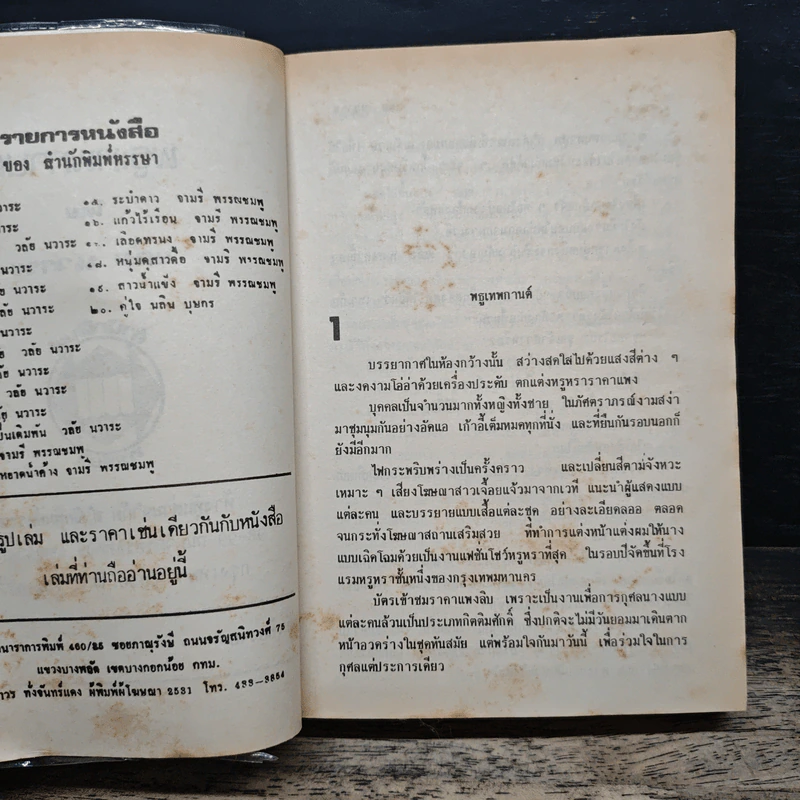 รายการหนังสือ
ของ สำนักพิมพ์หรรษา
วาระ
๑๕. ระบำดาว จามรี พรรณชมพู
๑๖. แก้วไร้เรือน จามรี พรรณชมพู
วลัย นวาระ
เลือดทรนง จามรี พรรณชมพู
นวาระ
๑๘. หนุ่มดุสาวดื้อ จามรี พรรณชมพู
วลัย นวาระ
๑๙. สาวน้ำแข็ง จามรี พรรณชมพู
นวาระ
๒๐. คู่ใจ นลิน บุษกร
วลัย นวาระ
นวาระ
วลัย นวาระ
นวาระ
วลัย นวาระ
จามรี พรรณชมพู
หยาดน้ำค้าง จามรี พรรณชมพู
รูปเล่ม และราคาเช่นเดียวกันกับหนังสือ
เล่มที่ท่านถืออ่านอยู่นี้
การพิมพ์ 460/25 ซอยภาณุรังษี ถนนจรัญสนิทวงศ์ 75
แขวงบางพลัด เขตบางกอกน้อย กทม.
ทั่งจันทร์แดง ผู้พิมพ์ผู้โฆษณา 2531 โทร. 433-3854
พธูเทพกานต์
1
บรรยากาศในห้องกว้างนั้น สว่างสดใสไปด้วยแสงสีต่าง ๆ
และงดงามโอ่อ่าด้วยเครื่องประดับ ตกแต่งหรูหราราคาแพง
บุคคลเป็นจำนวนมากทั้งหญิงทั้งชาย ในภัศตราภรณ์งามสง่า
มาชุมนุมกันอย่างอัดแอ เก้าอี้เต็มหมดทุกที่นั่ง และที่ยืนกันรอบนอกก็
ยังมีอีกมาก
ไฟกระพริบพร่างเป็นครั้งคราว และเปลี่ยนสีตามจังหวะ
เหมาะ ๆ เสียงโฆษณาสาวเจื้อยแจ้วมาจากเวที แนะนำผู้แสดงแบบ
แต่ละคน และบรรยายแบบเสื้อแต่ละชุด อย่างละเอียดลออ ตลอด
จนกระทั่งโฆษณาสถานเสริมสวย ที่ทำการแต่งหน้าแต่งผมให้นาง
แบบเฉิดโฉมด้วยเป็นงานแฟชั่นโชว์หรูหราที่สุด ในรอบปีจัดขึ้นที่โรง
แรมหรูหราชั้นหนึ่งของกรุงเทพมหานคร
บัตรเข้าชมราคาแพงลิบ เพราะเป็นงานเพื่อการกุศลนางแบบ
แต่ละคนล้วนเป็นประเภทกิตติมศักดิ์ ซึ่งปกติจะไม่มีวันยอมมาเดินตาก
หน้าอวดร่างในชุดทันสมัย แต่พร้อมใจกันมาวันนี้ เพื่อร่วมใจในการ
กุศลแต่ประการเดียว